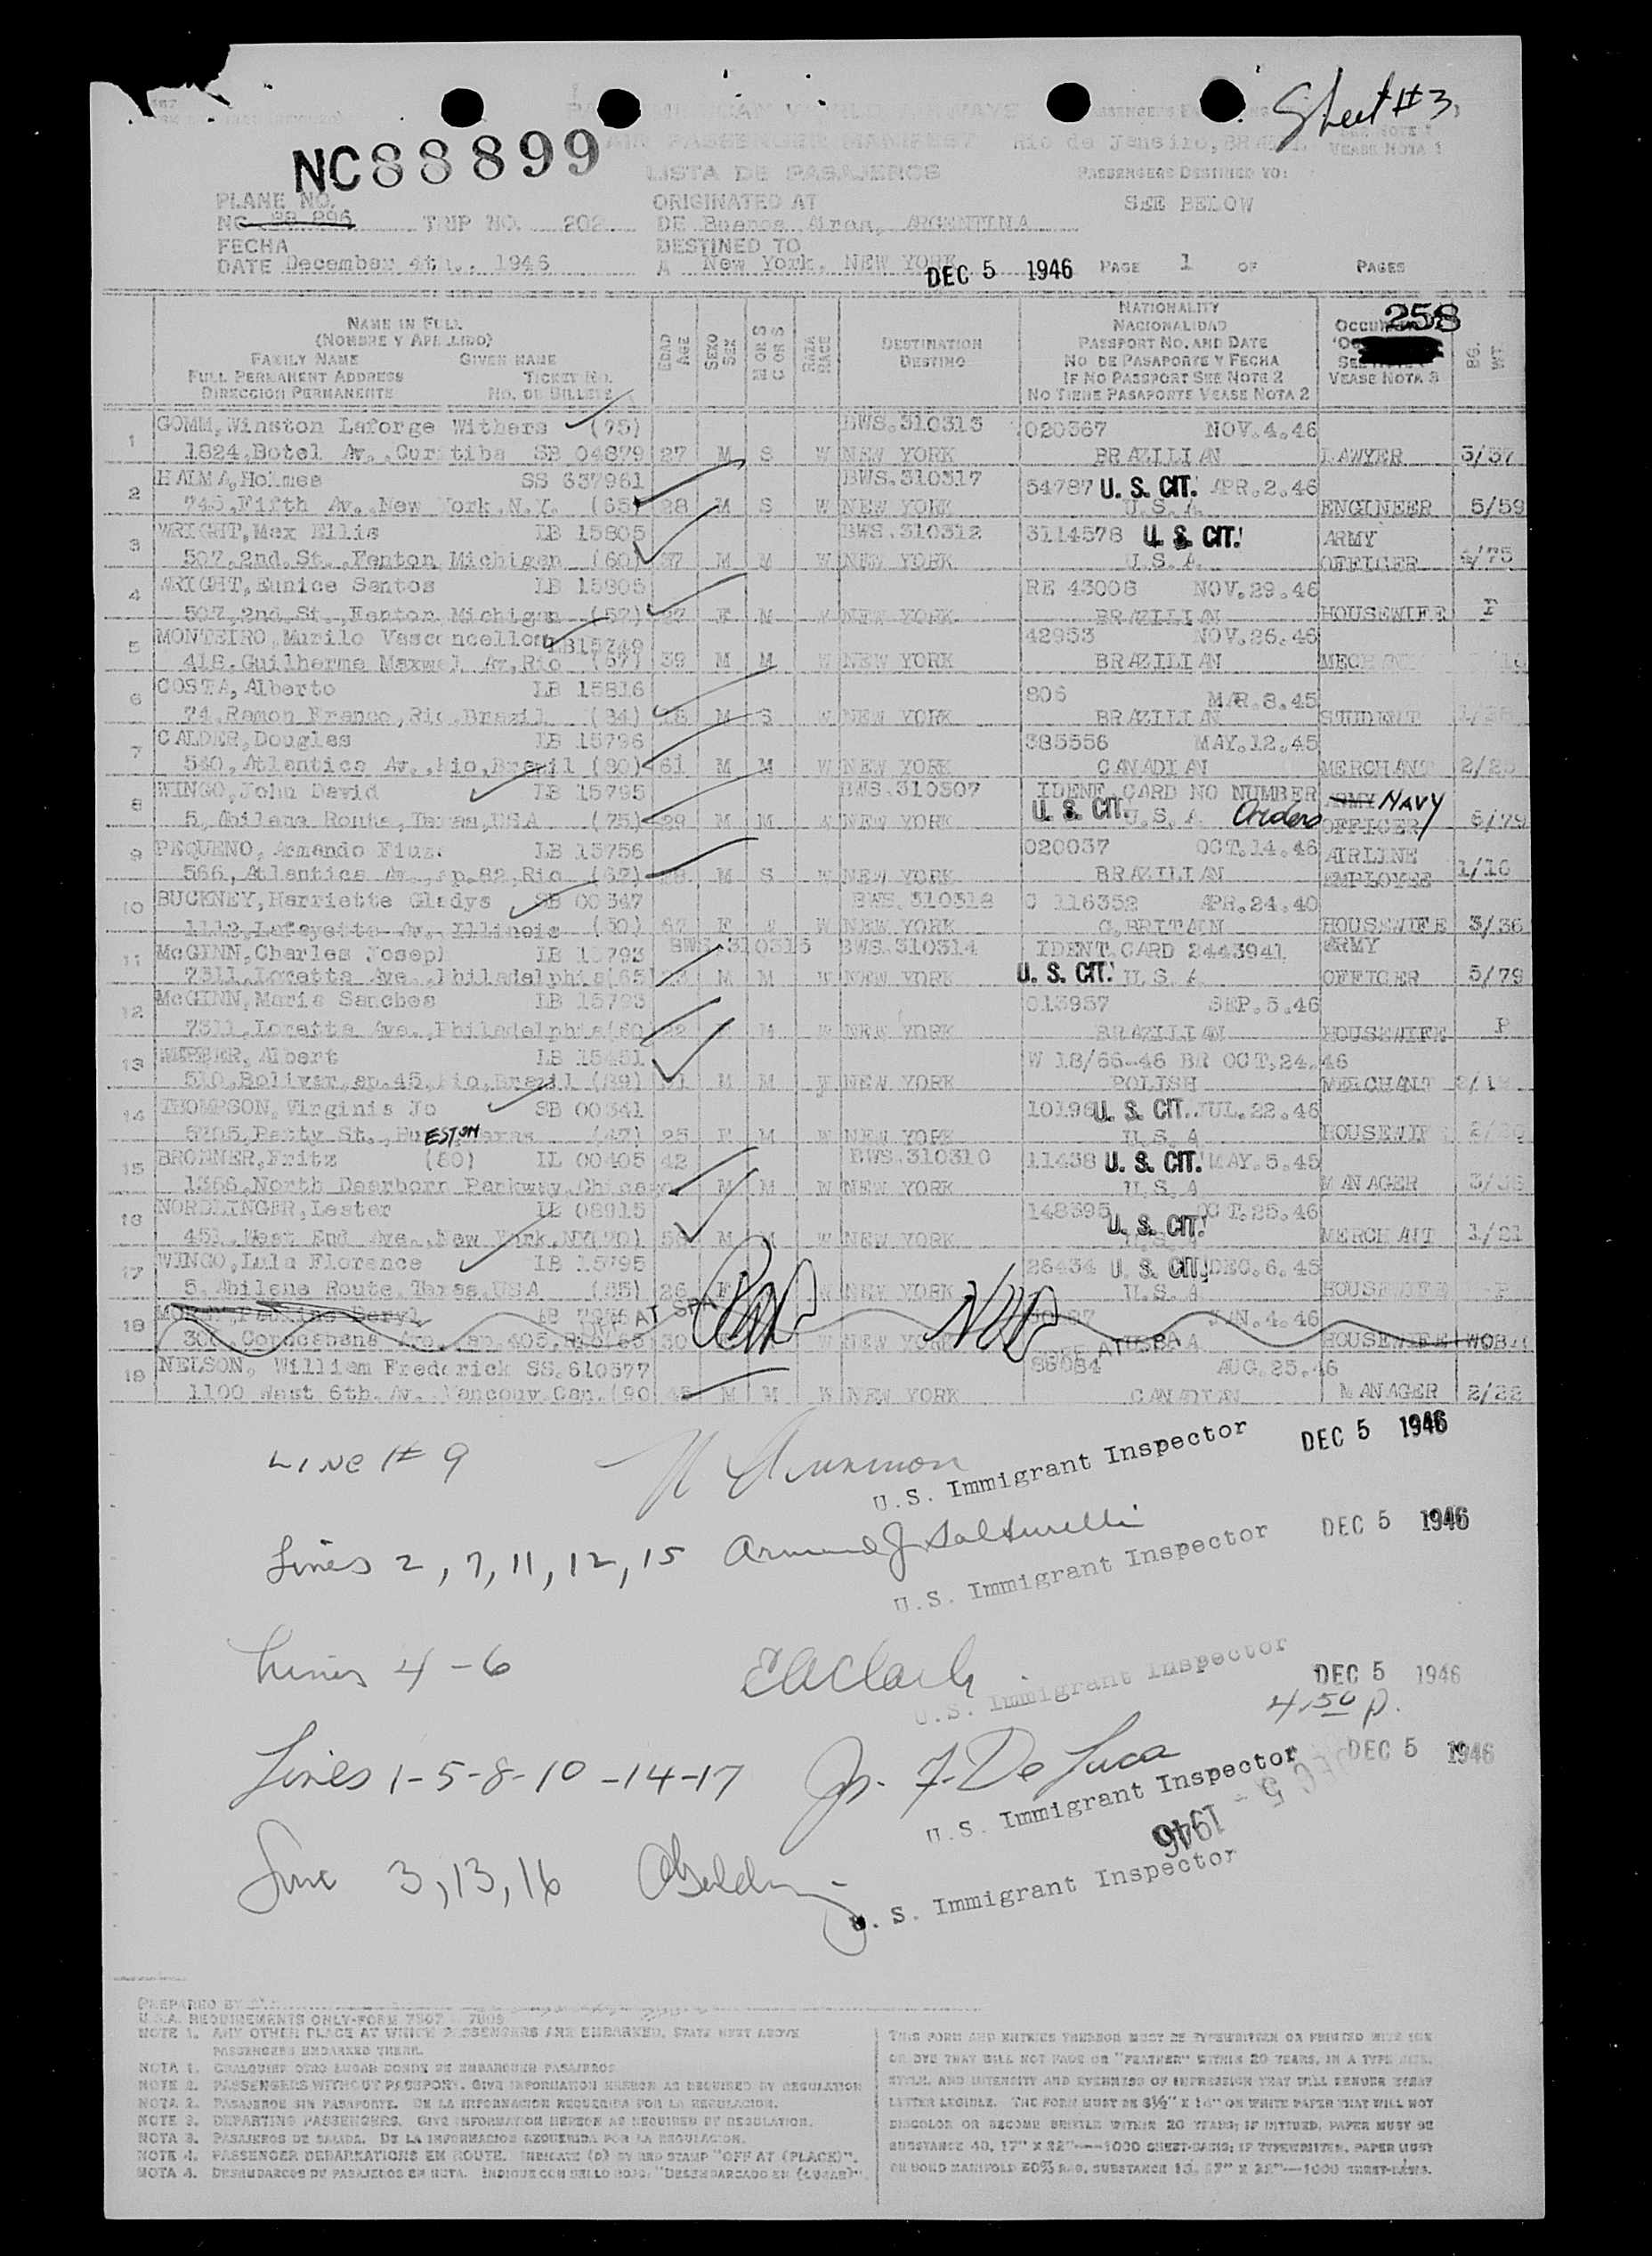 Sheet #3
PASSENGERS
AIR PASSENGER MANIFEST Rio de Janeiro, BRAZIL
VEASE NOTA 1
NC88899
LISTA DE PASAJEROS PASSENGERS DESTINED TO:
PLANE NO. ORIGINATED AT SEE BELOW
NC 88 896 TRIP NO. 202 DE Buenos Aires, ARGENTINA
FECHA DESTINED TO
DATE December 4th., 1946 A New York, NEW YORK DEC 5 1946 PAGE 1 OF PAGES
258
NAME IN FULL
(NOMBRE Y APELLIDO)
FAMILY NAME GIVEN NAME
FULL PERMANENT ADDRESS TICKET NO.
DIRECCION PERMANENTE NO. DE BILLETE
EDAD AGE
SEXO SEX
M OR S
C OR S
RAZA RACE
DESTINATION
DESTINO
NATIONALITY
NACIONALIDAD
PASSPORT NO. AND DATE
NO DE PASAPORTE Y FECHA
IF NO PASSPORT SEE NOTE 2
NO TIENE PASAPORTE VEASE NOTA 2
VEASE NOTA 3
BG.
WT.
1 GOMM, Winston Laforge Withers (75) BWS.310313 020367 NOV.4.46
1824, Botel Av., Curitiba SB 04879 27 M S W NEW YORK BRAZILIAN LAWYER 3/37
2 HALMA, Holmes SS 637961 BWS.310317 54787 U. S. CIT. APR.2.46
745, Fifth Av., New York, N.Y. (65) 28 M S W NEW YORK U.S.A. ENGINEER 5/59
3 WRIGHT, Max Ellis LB 15805 BWS.310312 3114578 U. S. CIT. ARMY
507, 2nd. St., Fenton Michigan (60) 37 M M W NEW YORK U.S.A. OFFICER 4/75
4 WRIGHT, Eunice Santos LB 15805 RE 43008 NOV.29.46
507, 2nd. St., Fenton Michigan (57) 27 F M W NEW YORK BRAZILIAN HOUSEWIFE P
5 MONTEIRO, Murilo Vasconcellos LB15749 42953 NOV.26.46
418, Guilherme Maxwel Av, Rio (67) 39 M M W NEW YORK BRAZILIAN
6 COSTA, Alberto LB 15816 806 MAR.8.45
74, Ramon Franco, Rio, Brazil (84) 18 M S W NEW YORK BRAZILIAN STUDENT
7 CALDER, Douglas LB 15796 385556 MAY.12.45
540, Atlantica Av., Rio, Brazil (80) 61 M M W NEW YORK CANADIAN MERCHANT
8 WINGO, John David LB 15795 BWS.310307 IDENT.CARD NO NUMBER ARMY NAVY
5, Abilene Route, Texas, USA (75) 29 M M W NEW YORK U. S. CIT. U.S.A Orders OFFICER 6/79
9 PEQUENO, Armando Fiuza LB 15756 020037 OCT.14.46 AIRLINE
566, Atlantica Av., ap.82, Rio (67) 28 M S W NEW YORK BRAZILIAN EMPLOYEE 1/10
10 BUCKNEY, Harriette Gladys SB 00347 BWS.310318 C 116352 APR.24.40
1112, Lafayette Av., Illinois (50) 67 F W NEW YORK G.BRITAIN HOUSEWIFE 3/36
11 McGINN, Charles Joseph LB 15793 BWS.310315 BWS.310314 IDENT.CARD 2443941 ARMY
7311, Loretta Ave., Philadelphia (65) M M W NEW YORK U. S. CIT. U.S.A OFFICER 5/79
12 McGINN, Maria Sanches LB 15793 013937 SEP.5.46
7311, Loretta Ave., Philadelphia (60) 22 F M W NEW YORK BRAZILIAN HOUSEWIFE P
13 Albert LB 15451 W 18/66-46 BR OCT.24.46
510, Bolivar, ap.45, Rio, Brazil (89) M M W NEW YORK POLISH MERCHANT
14 THOMPSON, Virginia Jo SB 00341 10196 U. S. CIT. JUL.22.46
5705, Petty St., HuESTON Texas (47) 25 F M W NEW YORK U.S.A HOUSEWIFE
15 BRONNER, Fritz (80) IL 00405 42 BWS.310310 11438 U. S. CIT. MAY.5.45
1366, North Dearborn Parkway, Chicago M M W NEW YORK U.S.A MANAGER
16 NORDLINGER, Lester LB 08915 148395 OCT.25.46
451, West End Ave., New York, NY(70) 56 M M W NEW YORK U. S. CIT. MERCHANT 1/21
17 WINGO, Lula Florence LB 15795 26434 U. S. CIT. DEC.6.45
5, Abilene Route, Texas, USA (55) 26 F W NEW YORK U.S.A HOUSEWIFE P
18 AT JAN.4.46
Copacabana Ave, ap.405, 30 W NEW YORK HOUSEWIFE
19 NELSON, William Frederick SS.610577 AUG.25.46
1100 West 6th. Av., Vancouv.Can. (90 M M W NEW YORK CANADIAN MANAGER 2/22
LINE # 9 U.S. Immigrant Inspector DEC 5 1946
Lines 2, 7, 11, 12, 15 Armand J Salturelli U.S. Immigrant Inspector DEC 5 1946
Lines 4-6 EAClark U.S. Immigrant Inspector DEC 5 1946
4.50 p.
Lines 1-5-8-10-14-17 Jn. F. De Luca U.S. Immigrant Inspector DEC 5 1946
DEC 5 - 1946
Line 3, 13, 16 U. S. Immigrant Inspector
PREPARED BY
U.S.A. REQUIREMENTS ONLY-FORM 7507
NOTE 1. ANY OTHER PLACE AT WHICH PASSENGERS ARE EMBARKED, STATE NEXT ABOVE
PASSENGERS EMBARKED THERE.
NOTA 1. CUALQUIER OTRO LUGAR DONDE SE EMBARQUEN PASAJEROS
NOTE 2. PASSENGERS WITHOUT PASSPORT. GIVE INFORMATION HEREON AS REQUIRED BY REGULATION
NOTA 2. PASAJEROS SIN PASAPORTE. DE LA INFORMACION REQUERIDA POR LA REGULACION.
NOTE 3. DEPARTING PASSENGERS. GIVE INFORMATION HEREON AS REQUIRED BY REGULATION.
NOTA 3. PASAJEROS DE SALIDA. DE LA INFORMACION REQUERIDA POR LA REGULACION.
NOTE 4. PASSENGER DEBARKATIONS EN ROUTE. INDICATE (D) BY RED STAMP "OFF AT (PLACE)".
NOTA 4. DESEMBARCOS DE PASAJEROS EN RUTA. INDIQUE CON SELLO ROJO: "DESEMBARCADO EN (LUGAR)".
THIS FORM AND ENTRIES THEREON MUST BE TYPEWRITTEN OR PRINTED WITH INK
OR DYE THAT WILL NOT FADE OR "FEATHER" WITHIN 20 YEARS, IN A TYPE SIZE,
STYLE, AND INTENSITY AND EVENNESS OF IMPRESSION THAT WILL RENDER EVERY
LETTER LEGIBLE. THE FORM MUST BE 8½" X 14" ON WHITE PAPER THAT WILL NOT
DISCOLOR OR BECOME BRITTLE WITHIN 20 YEARS; IF DITTOED, PAPER MUST BE
SUBSTANCE 40, 17" X 22"---1000 SHEET-BASIS; IF TYPEWRITTEN, PAPER MUST
BE BOND MANIFOLD 50% RAG, SUBSTANCE 16, 17" X 22"---1000 SHEET-BASIS.